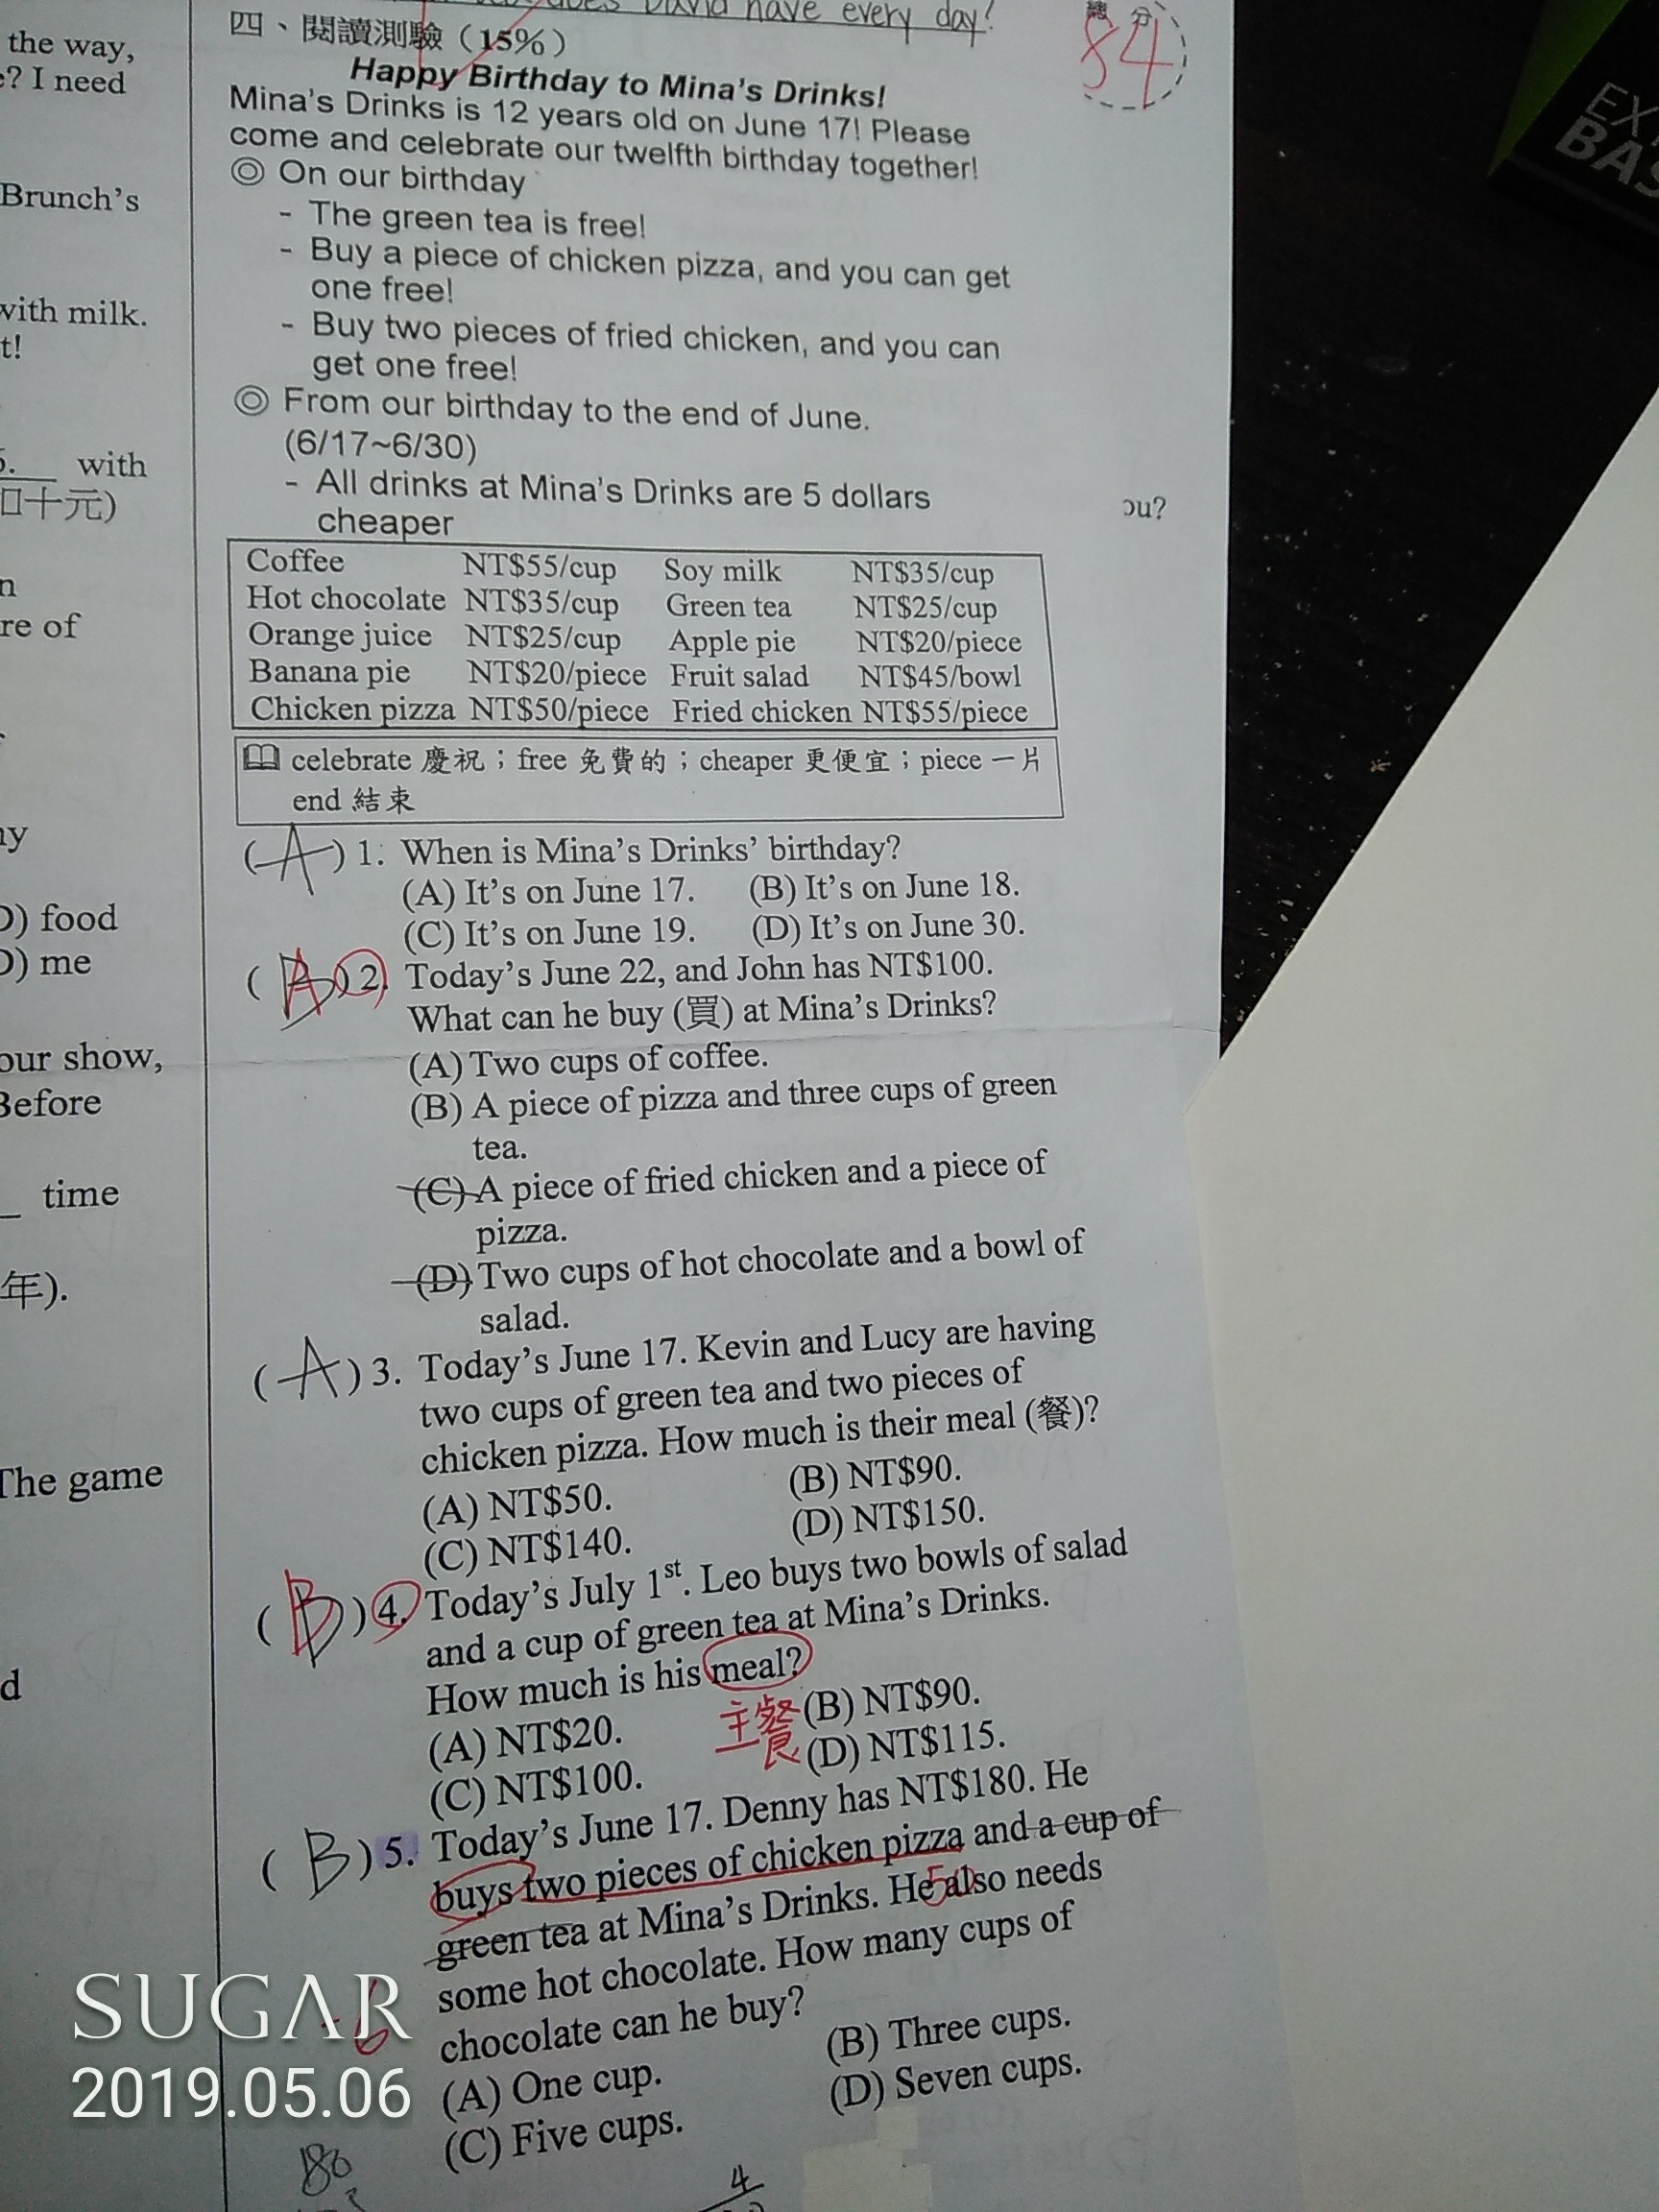 the way,
? I need
Brunch's
with milk.
t!
with
扣十元)
n
re of
D) food
D) me
our show,
Before
time
年).
The game
d
have every day!
總分
84
四、閱讀測驗（15%）
Happy Birthday to Mina's Drinks!
Mina's Drinks is 12 years old on June 17! Please
come and celebrate our twelfth birthday together!
◎ On our birthday
- The green tea is free!
- Buy a piece of chicken pizza, and you can get
one free!
- Buy two pieces of fried chicken, and you can
get one free!
◎ From our birthday to the end of June.
(6/17~6/30)
- All drinks at Mina's Drinks are 5 dollars
cheaper
ou?
Coffee NT$55/cup Soy milk NT$35/cup
Hot chocolate NT$35/cup Green tea NT$25/cup
Orange juice NT$25/cup Apple pie NT$20/piece
Banana pie NT$20/piece Fruit salad NT$45/bowl
Chicken pizza NT$50/piece Fried chicken NT$55/piece
celebrate 慶祝；free 免費的；cheaper 更便宜；piece 一片
end 結束
(A) 1. When is Mina's Drinks' birthday?
(A) It's on June 17. (B) It's on June 18.
(C) It's on June 19. (D) It's on June 30.
(A) 2. Today's June 22, and John has NT$100.
What can he buy (買) at Mina's Drinks?
(A) Two cups of coffee.
(B) A piece of pizza and three cups of green
tea.
(C) A piece of fried chicken and a piece of
pizza.
(D) Two cups of hot chocolate and a bowl of
salad.
(A) 3. Today's June 17. Kevin and Lucy are having
two cups of green tea and two pieces of
chicken pizza. How much is their meal (餐)?
(A) NT$50. (B) NT$90.
(C) NT$140. (D) NT$150.
(D) 4. Today's July 1st. Leo buys two bowls of salad
and a cup of green tea at Mina's Drinks.
How much is his meal?
主餐
(A) NT$20. (B) NT$90.
(C) NT$100. (D) NT$115.
(B) 5. Today's June 17. Denny has NT$180. He
buys two pieces of chicken pizza and a cup of
50
green tea at Mina's Drinks. He also needs
some hot chocolate. How many cups of
chocolate can he buy?
(A) One cup. (B) Three cups.
(C) Five cups. (D) Seven cups.
-6
180
4
SUGAR
2019.05.06